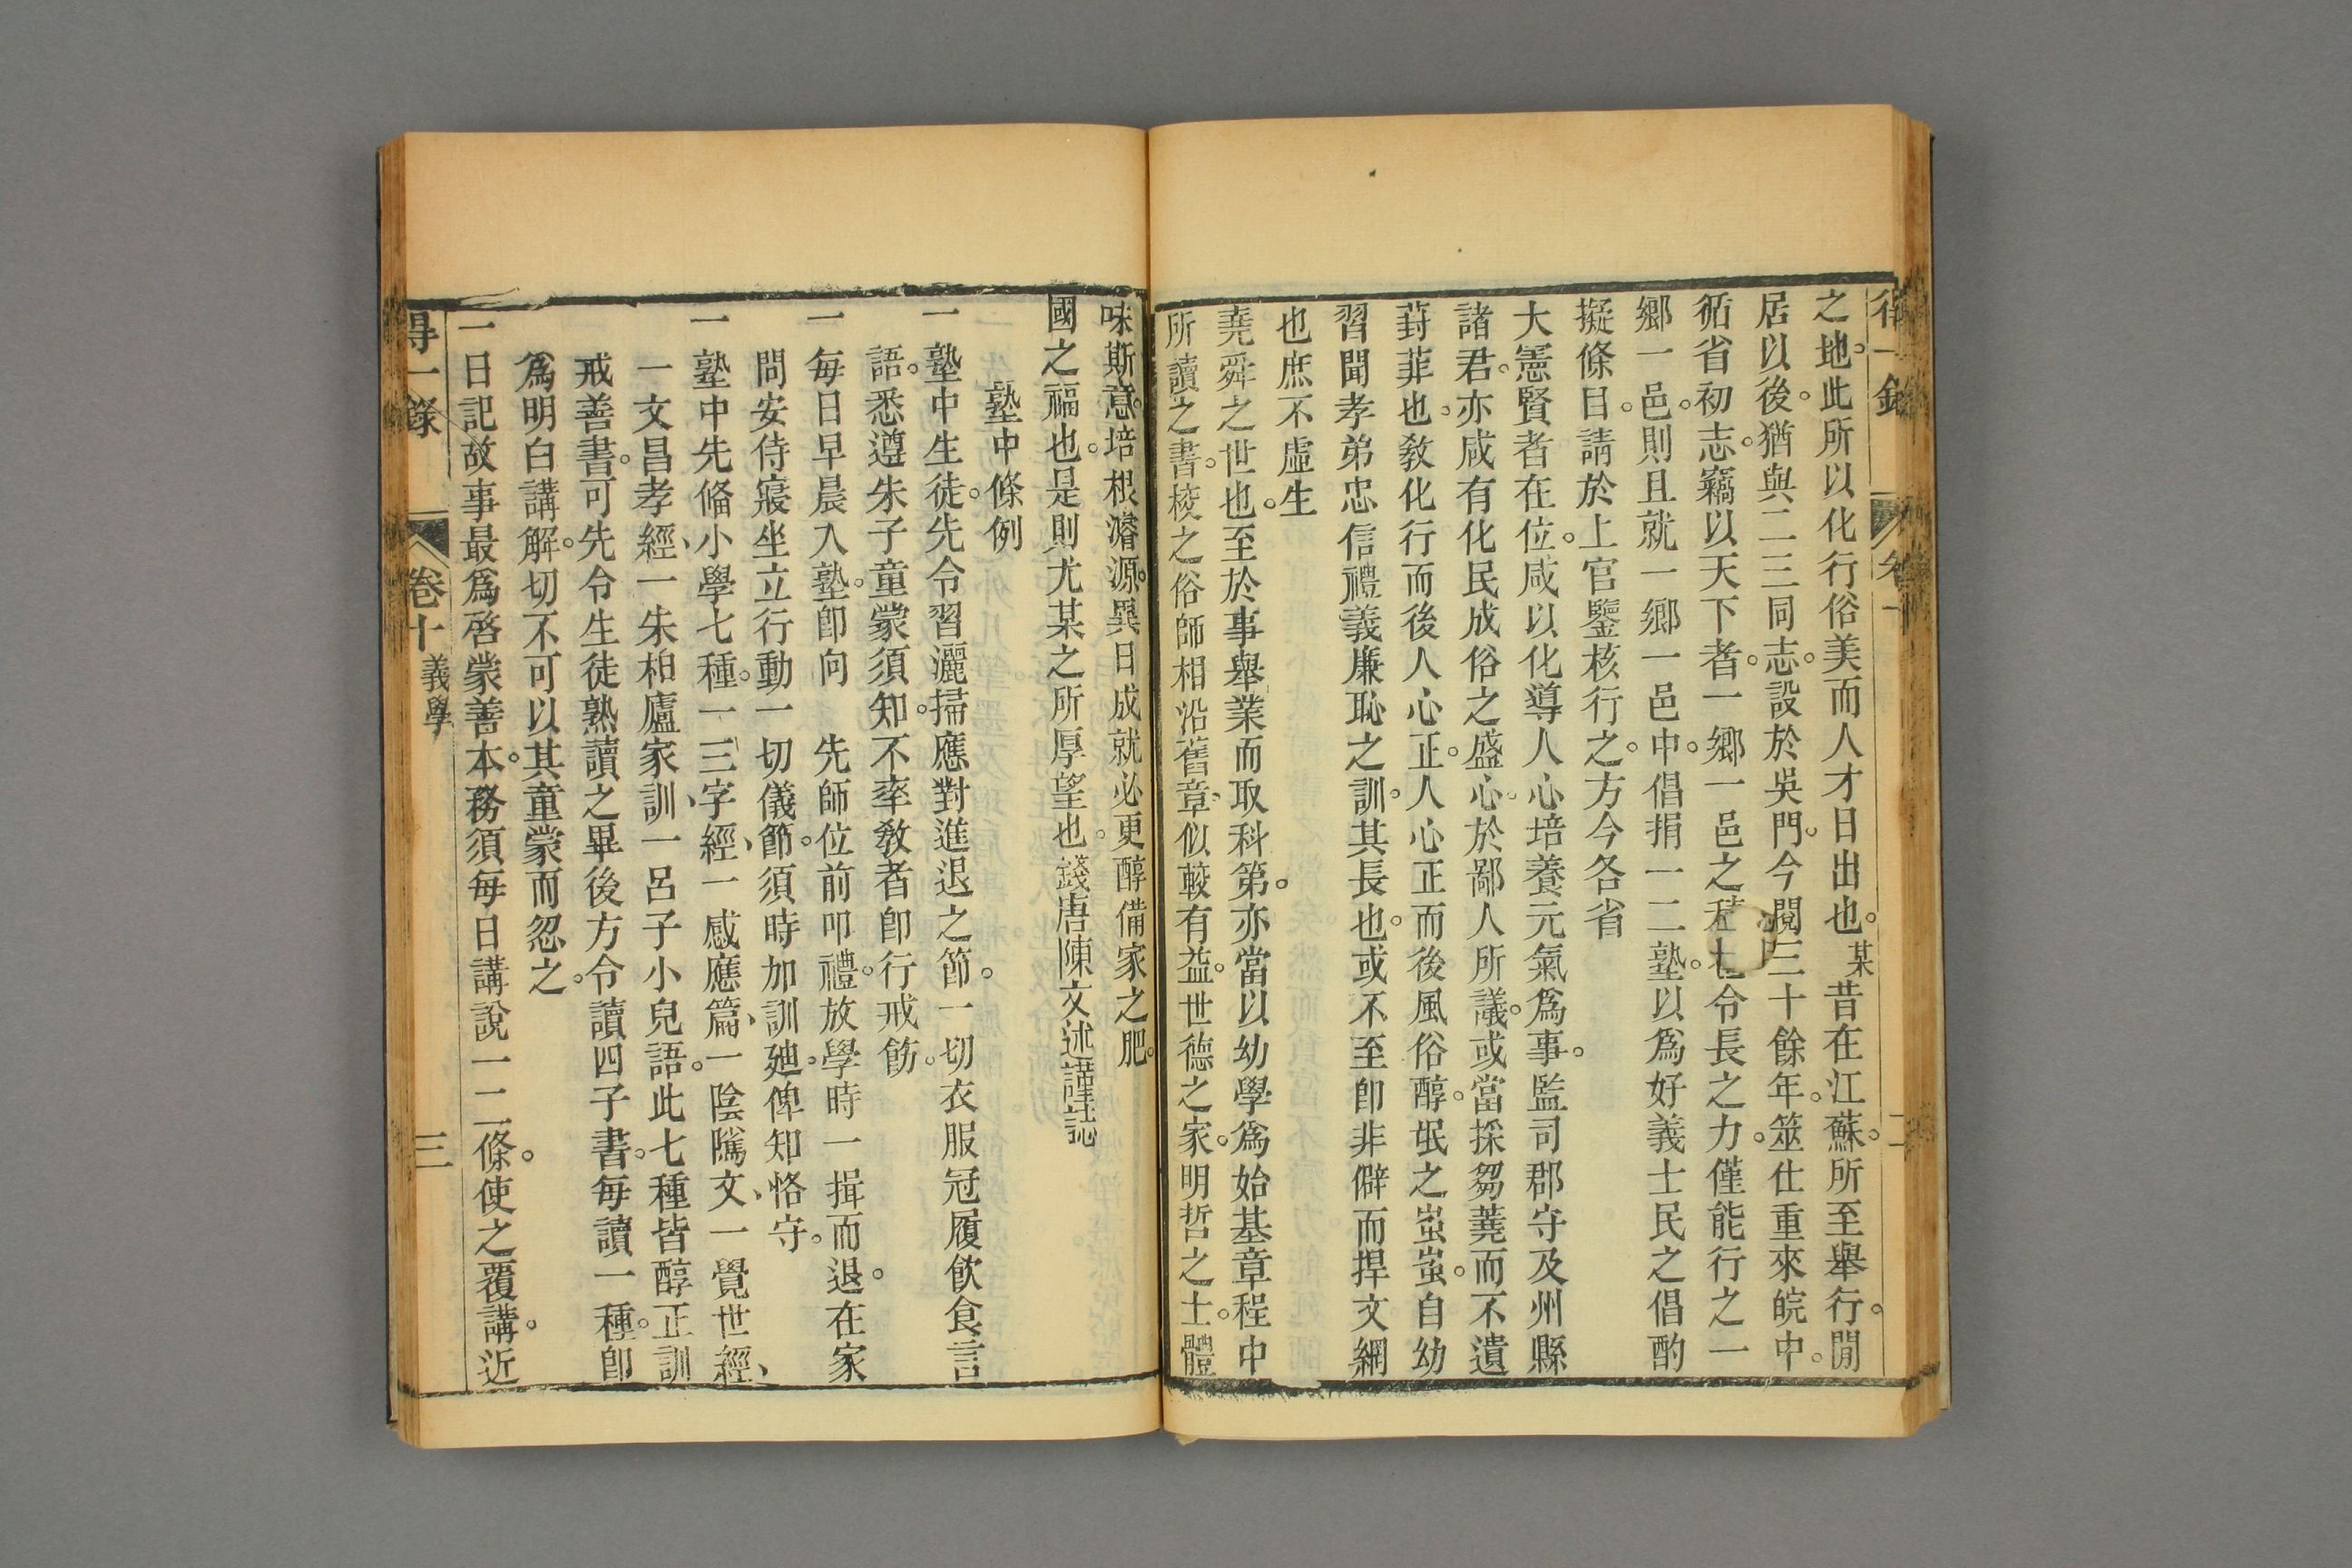 得一錄
之地。此所以化行俗美而人才日出也。某昔在江蘇。所至舉行。閒
居以後。猶與二三同志。設於吳門。今閱三十餘年。筮仕重來皖中。
循省初志。竊以天下者。一鄉一邑之積也。令長之力。僅能行之一
鄉一邑。則且就一鄉一邑中。倡捐一二塾。以爲好義士民之倡酌
擬條目。請於上官鑒核行之。方今各省
大憲賢者在位。咸以化導人心培養元氣爲事。監司郡守及州縣
諸君。亦咸有化民成俗之盛心。於鄙人所議。或當採芻蕘而不遺
葑菲也。教化行而後人心正。人心正而後風俗醇。氓之蚩蚩。自幼
習聞孝弟忠信禮義廉恥之訓。其長也。或不至卽非僻而捍文網
也庶不虛生
堯舜之世也。至於事舉業而取科第。亦當以幼學爲始基章程中
所讀之書。梭之俗師相沿舊章、似較有益。世德之家。明哲之士。體
味斯意。培根濬源。異日成就必更醇備家之肥。
國之福也。是則尤某之所厚望也。錢唐陳文述謹誌
塾中條例
一塾中生徒。先令習灑掃應對進退之節。一切衣服冠履飮食言
語。悉遵朱子童蒙須知。不率教者卽行戒飭。
一每日早晨入塾。卽向 先師位前叩禮。放學時一揖而退。在家
問安侍寢坐立行動一切儀節。須時加訓廸。俾知恪守。
一塾中先備小學七種。一三字經、一感應篇、一陰騭文、一覺世經、
一文昌孝經、一朱柏廬家訓、一呂子小兒語。此七種皆醇正訓
戒善書。可先令生徒熟讀之畢後方令讀四子書。每讀一種。卽
爲明白講解。切不可以其童蒙而忽之。
一日記故事最爲啓蒙善本。務須每日講說一二條。使之覆講。近
得一錄 卷十 義學 三